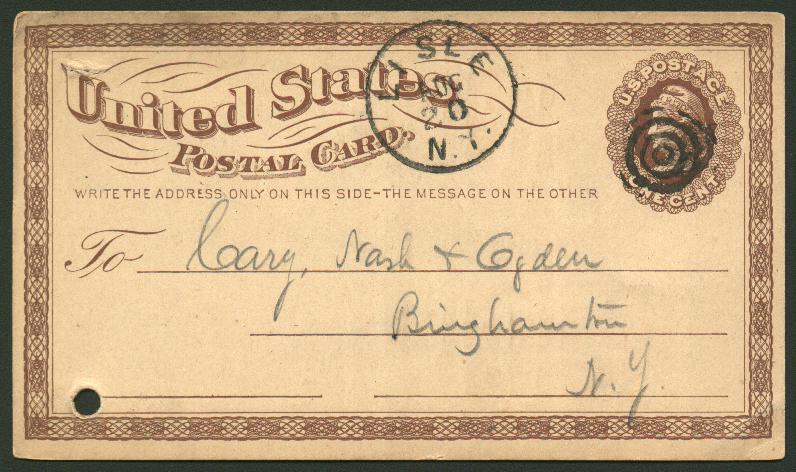 United States
POSTAL CARD.
LISLE
N.Y.
U.S. POSTAGE
ONE CENT
WRITE THE ADDRESS ONLY ON THIS SIDE-THE MESSAGE ON THE OTHER
To Cary, Nash & Ogden
Binghamton
N.Y.